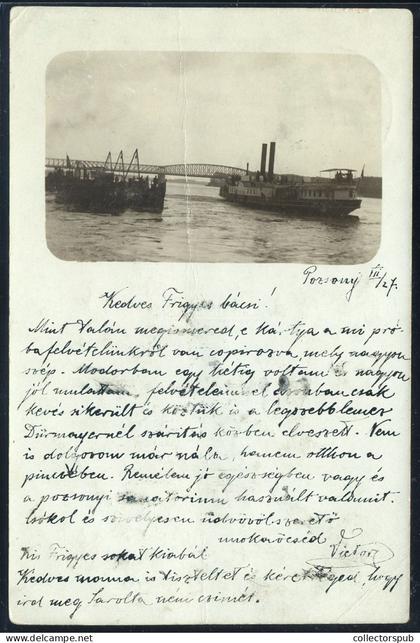 Pozsony VII/27.
Kedves Frigyes bácsi!
Mint talán megismered, e kártya a mi pró-
bafelvételünkről van copirozva, mely nagyon
szép. Modorban egy hétig voltam és nagyon
jól mulattam, felvételeimmel azonban csak
kevés sikerült és köztük is a legszebb lemez
Dürmayernél szárítás közben elveszett. Nem
is dolgozom már nála, hanem otthon a
pincében. Remélem jó egészségben vagy és
a pozsonyi használt valamit.
Csókol és szívélyesen üdvözöl szerető
unokaöcséd
Victor
Kis Frigyes sokat kiabál
Kedves mama is tiszteltet és kéret Téged, hogy
írd meg Sarolta nem címét.
collectorspub.com